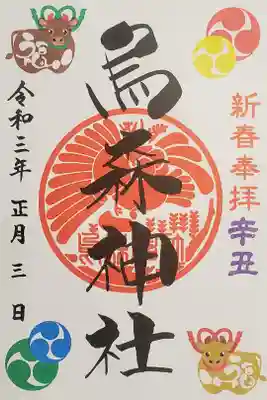 新春奉拝 辛丑
烏森神社
令和三年 正月 三 日
福
福